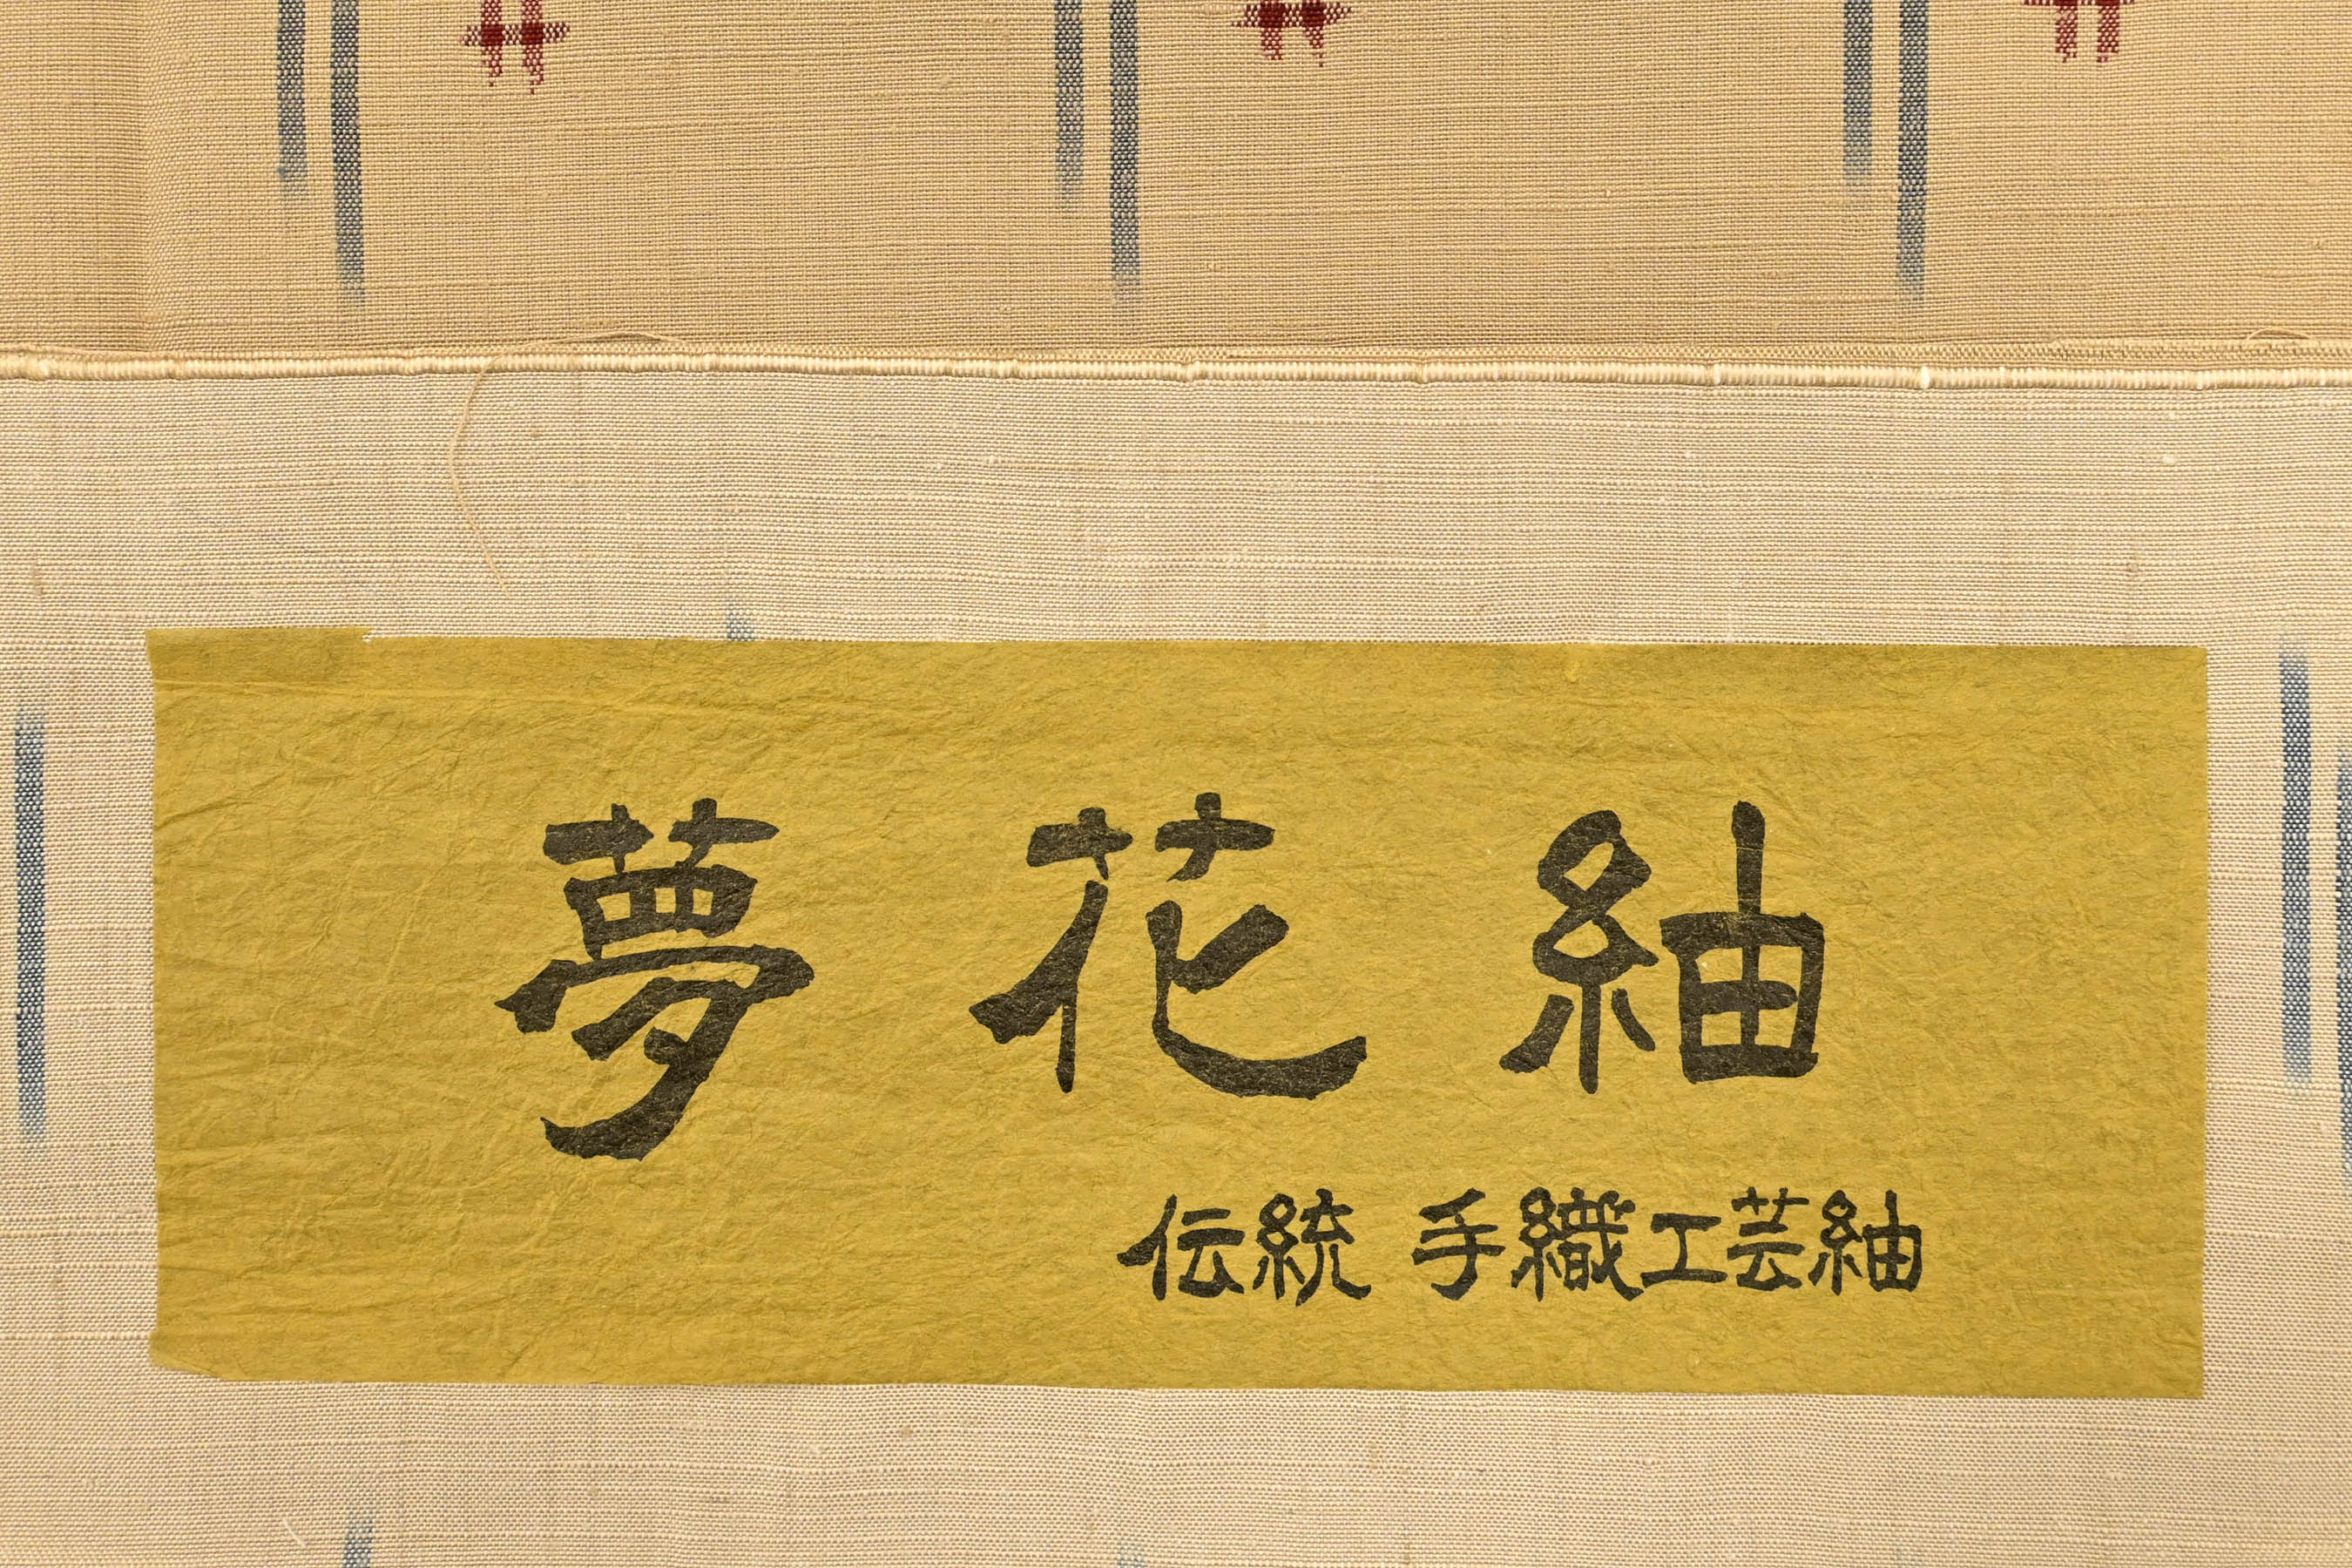 夢花紬
伝統 手織工芸紬